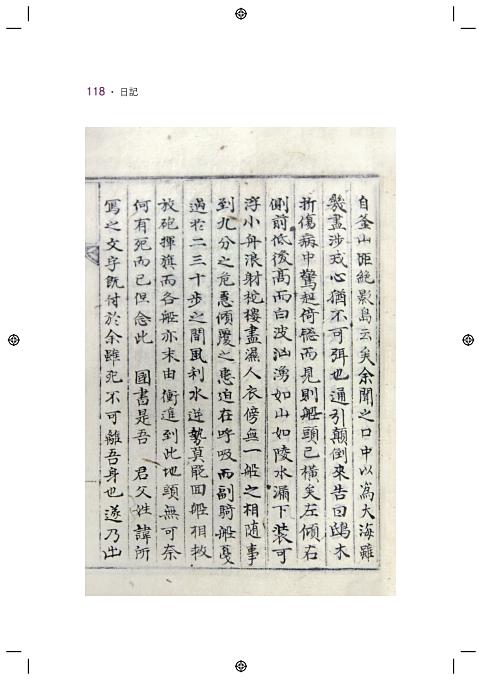 118 · 日記
自釜山距絶影島云矣余聞之口中以爲大海雖
幾盡涉戒心猶不可弭也通引顚倒來告曰鴟木
折傷病中驚起倚牕而見則船頭已橫矣左傾右
側前低後高而白波汹湧如山如陵水漏下裝可
浮小舟浪射柁樓盡濕人衣傍無一船之相隨事
到九分之危急傾覆之患迫在呼吸而副騎船戞
過於二三十步之間風利水逆勢莫能回船相救
放砲揮旗而各船亦末由衝進到此地頭無可奈
何有死而已但念此 國書是吾 君父姓諱所
寫之文字旣付於余雖死不可離吾身也遂乃出